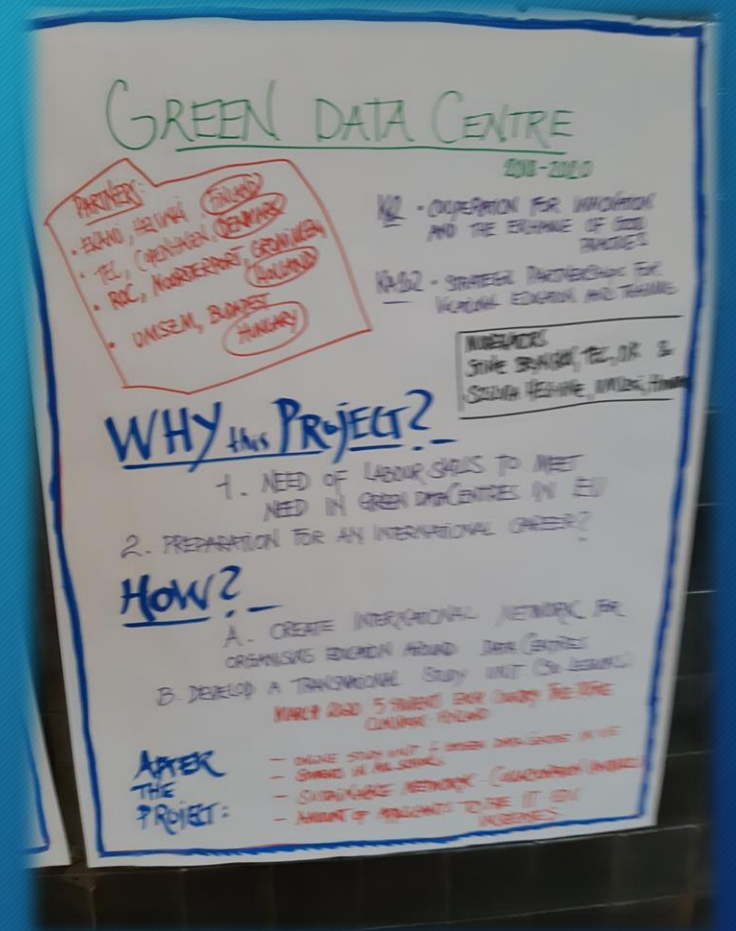 GREEN DATA CENTRE
2018-2020
PARTNERS:
HELSINKI, FINLAND
TEC, COPENHAGEN, DENMARK
ROC, NOORDERPOORT, GRONINGEN,
UNISZEM, BUDAPEST
HUNGARY
K2 - COOPERATION FOR INNOVATION
AND THE EXCHANGE OF GOOD
KA202 - STRATEGIC PARTNERSHIPS FOR
VOCATIONAL EDUCATION AND TRAINING
TEC, DK &
WHY this PROJECT?
1. NEED OF LABOUR SKILLS TO MEET
NEED IN GREEN DATACENTRES IN EU
2. PREPARATION FOR AN INTERNATIONAL CAREER?
HOW?
A. CREATE INTERNATIONAL NETWORK FOR
ORGANISING EDUCATION AROUND DATA CENTRES
B. DEVELOP A TRANSNATIONAL STUDY UNIT
MARCH 2020 5 STUDENTS EACH COUNTRY
FINLAND
AFTER
THE
PROJECT:
- ONLINE STUDY UNIT GREEN DATA CENTRE IN USE
- IN ALL SCHOOLS
- SUSTAINABLE NETWORK - COLLABORATION
- AMOUNT OF APPLICANTS TO THE IT EDU
INCREASES